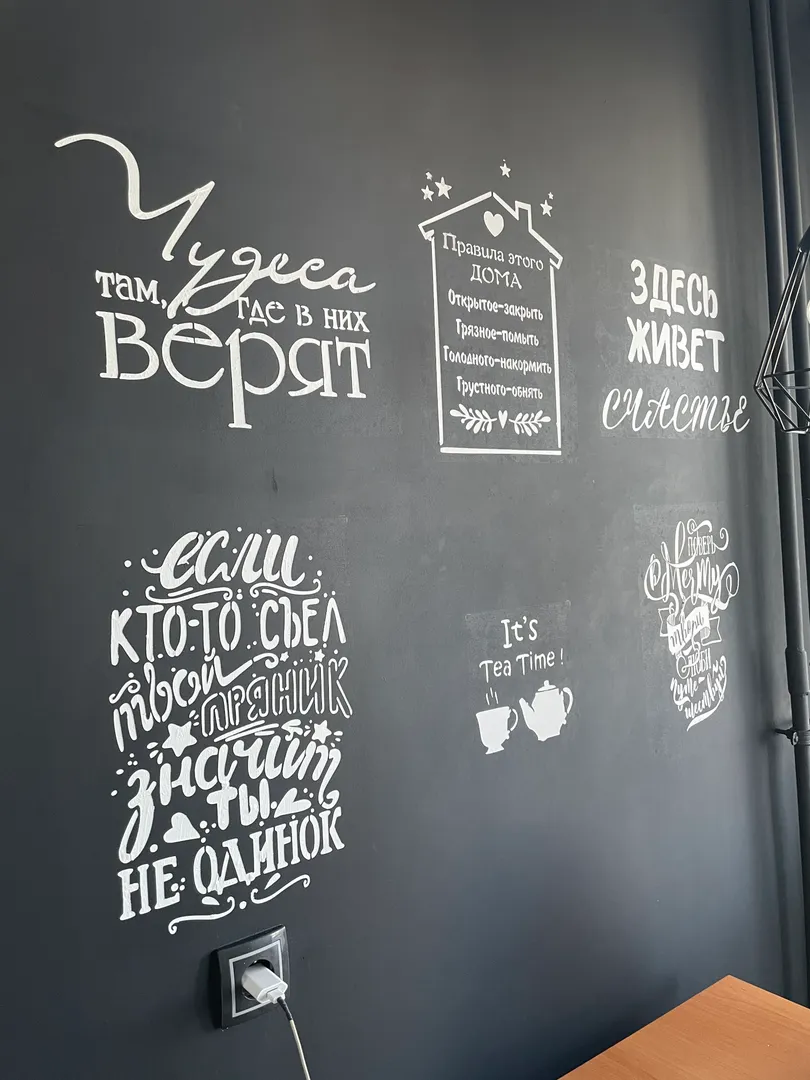 Чудеса
там, где в них
верят
Правила этого
ДОМА
Открытое-закрыть
Грязное-помыть
Голодного-накормить
Грустного-обнять
ЗДЕСЬ
ЖИВЕТ
СЧАСТЬЕ
если
КТО-ТО СЪЕЛ
твой ПРЯНИК
значит
ты
НЕ ОДИНОК
It's
Tea Time!
ПОВЕРЬ
в Мечту
твори
путе-
шествуй